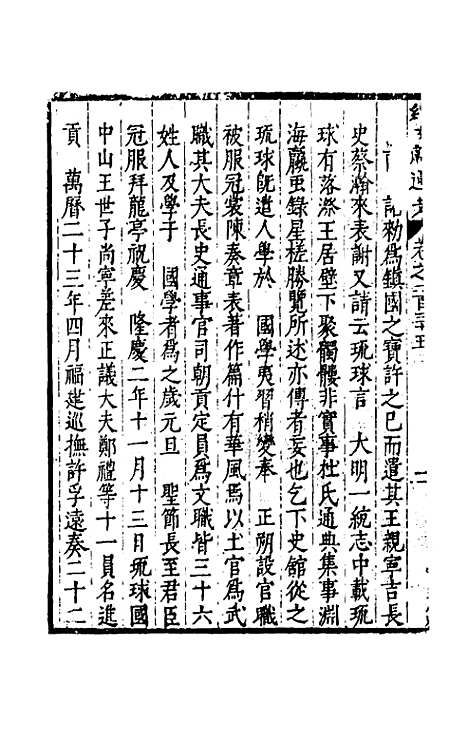 續文獻通考 卷之二百三十五
詔勑爲鎮國之寶許之已而遣其王親寧吉長
史蔡瀚來表謝又請云琉球言 大明一統志中載琉
球有落漈王居壁下聚髑髏非實事杜氏通典集事淵
海蠃虫錄星槎勝覽所述亦傳者妄也乞下史館從之
琉球旣遣人學於 國學夷習稍變奉 正朔設官職
被服冠裳陳奏章表著作篇什有華風焉以土官爲武
職其大夫長史通事官司朝貢定員爲文職皆三十六
姓人及學子 國學者爲之歲元旦 聖節長至君臣
冠服拜龍亭祝慶 隆慶二年十一月十三日琉球國
中山王世子尚寧差來正議大夫鄭禮等十一員名進
貢 萬曆二十三年四月福建巡撫許孚遠奏二十二